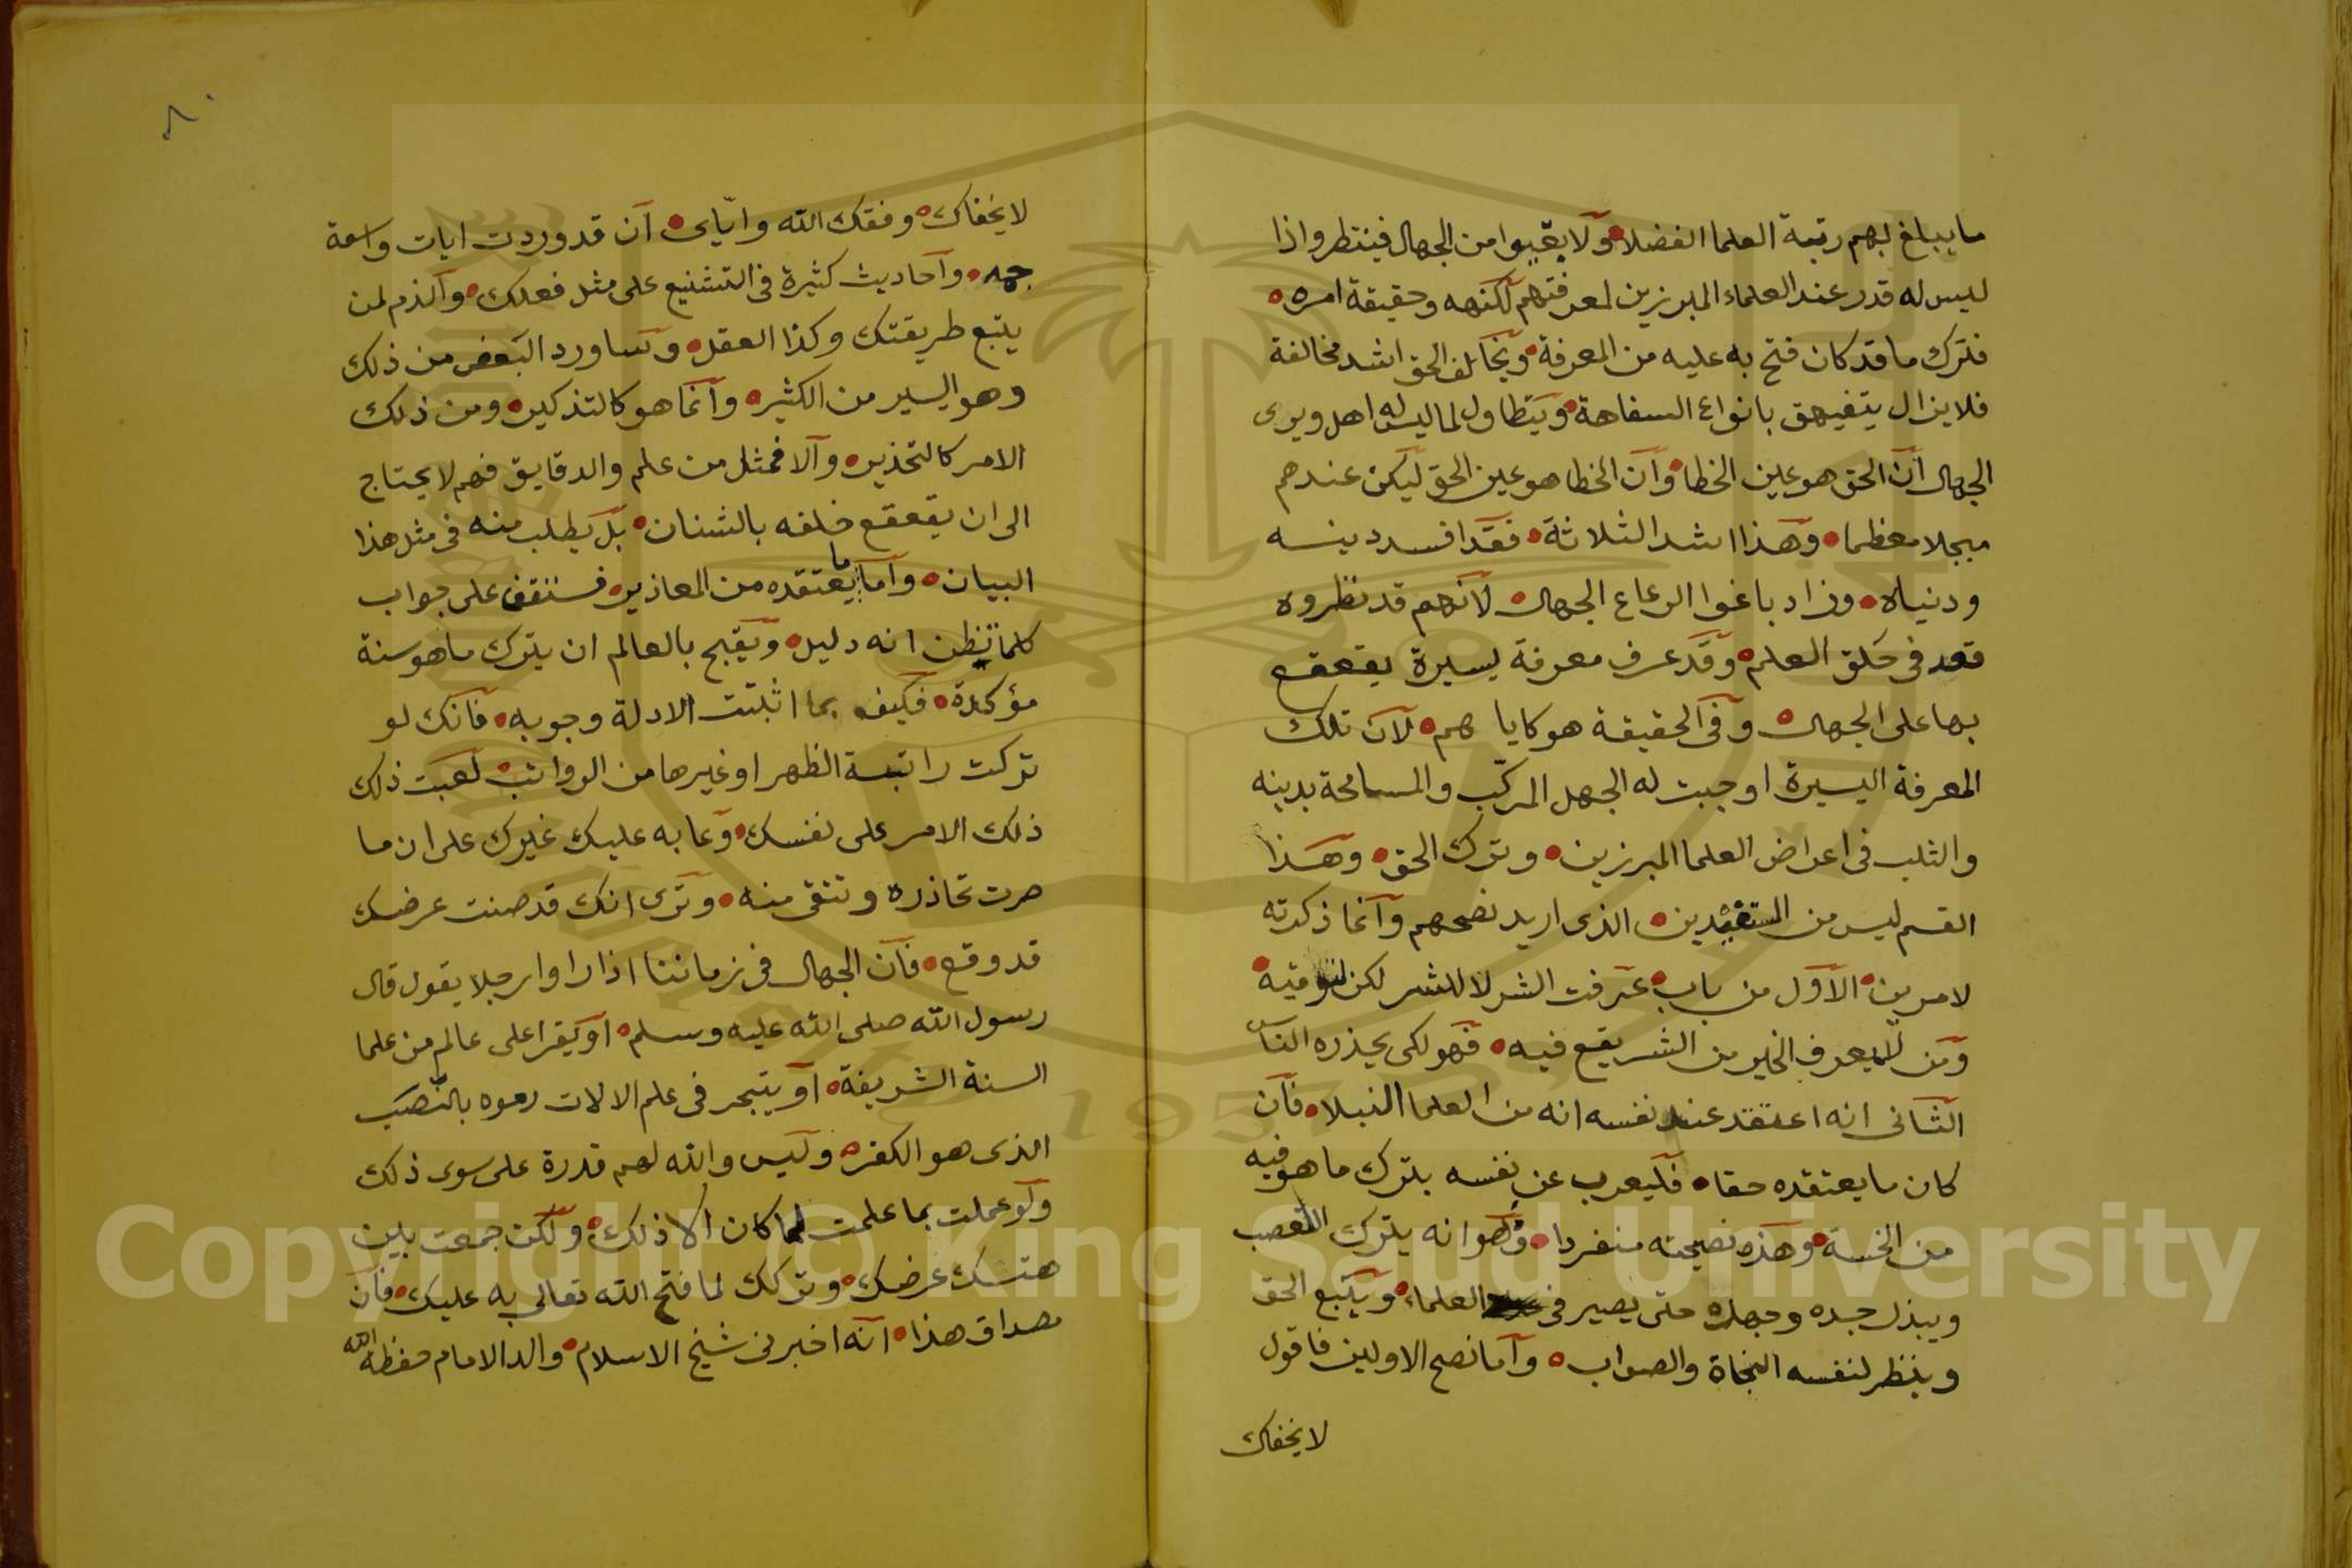 ما يبلغ بهم رتبة العلما الفضلا ولا يقيبوا من الجهال فينتظروا اذا
ليس له قدر عند العلماء المبرزين لمعرفتهم لكنهه وحقيقة امره
فترك ما قد كان فتح به عليه من المعرفة ويخالف الحق اشد مخالفة
فلا يزال يتفيهق بانواع السفاهة ويتطاول لما ليس له اهل ويرى
الجهال ان الحق هو عين الخطا وان الخطا هو عين الحق ليكن عندهم
مبجلا معظما وهذا اشد الثلاثة فقد افسد دينه
ودنياه وزاد باغوا الرعاع الجهال لانهم قد نظروه
قعد في حلق العلم وقد عرف معرفة يسيرة يقعقع
بها على الجهال وفي الحقيقة هو كاياهم لان تلك
المعرفة اليسيرة اوجبت له الجهل المركب والمسامحة بدينه
والثلب في اعراض العلما المبرزين وترك الحق وهذا
القسم ليس من الذى اريد نصحهم وانما ذكرته
لامرين الاول من باب عرفت الشر لا للشر لكن لتوقيه
ومن لا يعرف الخير من الشر يقع فيه فهو لكى يحذره الناس
الثانى انه اعتقد عند نفسه انه من العلما النبلا فان
كان ما يعتقده حقا فليعرب عن نفسه بترك ما هو فيه
من الخسة وهذه نصيحته منفردا وهو انه يترك التعصب
ويبذل جده وجهده حتى يصير في العلماء ويتبع الحق
وينظر لنفسه النجاة والصواب واما نصح الاولين فاقول
لا يخفاك
٨٠
لا يخفاك وفقك الله واياى ان قد وردت ايات واسعة
جمه واحاديث كثيرة في التشنيع على مثل فعلك والذم لمن
يتبع طريقتك وكذا العقل وساورد البعض من ذلك
وهو اليسير من الكثير وانما هو كالتذكير ومن ذلك
الامر كالتحذير والا فمثل من علم والدقايق فهم لا يحتاج
الى ان يقعقع خلفه بالشنان بل يطلب منه في مثل هذا
البيان واما ما يعتقده من المعاذير فستقف على جواب
كلما تظن انه دليل ويقبح بالعالم ان يترك ما هو سنة
مؤكدة فكيف بما اثبتت الادلة وجوبه فانك لو
تركت راتبة الظهر او غيرها من الرواتب لعبت ذلك
ذلك الامر على نفسك وعابه عليك غيرك على ان ما
صرت تحاذره وتتقى منه وترى انك قد صنت عرضك
قد وقع فان الجهال في زماننا اذا راوا رجلا يقول قال
رسول الله صلى الله عليه وسلم او يقرا على عالم من علما
السنة الشريفة او يتبحر في علم الالات رموه بالنصب
الذى هو الكفر وليس والله لهم قدرة على سوى ذلك
ولو عملت بما علمت لما كان الا ذلك ولكن جمعت بين
هتك عرضك وتركك لما فتح الله تعالى به عليك فان
مصداق هذا انه اخبرنى شيخ الاسلام والد الامام حفظه الله
Copyright © King Saud University
1957